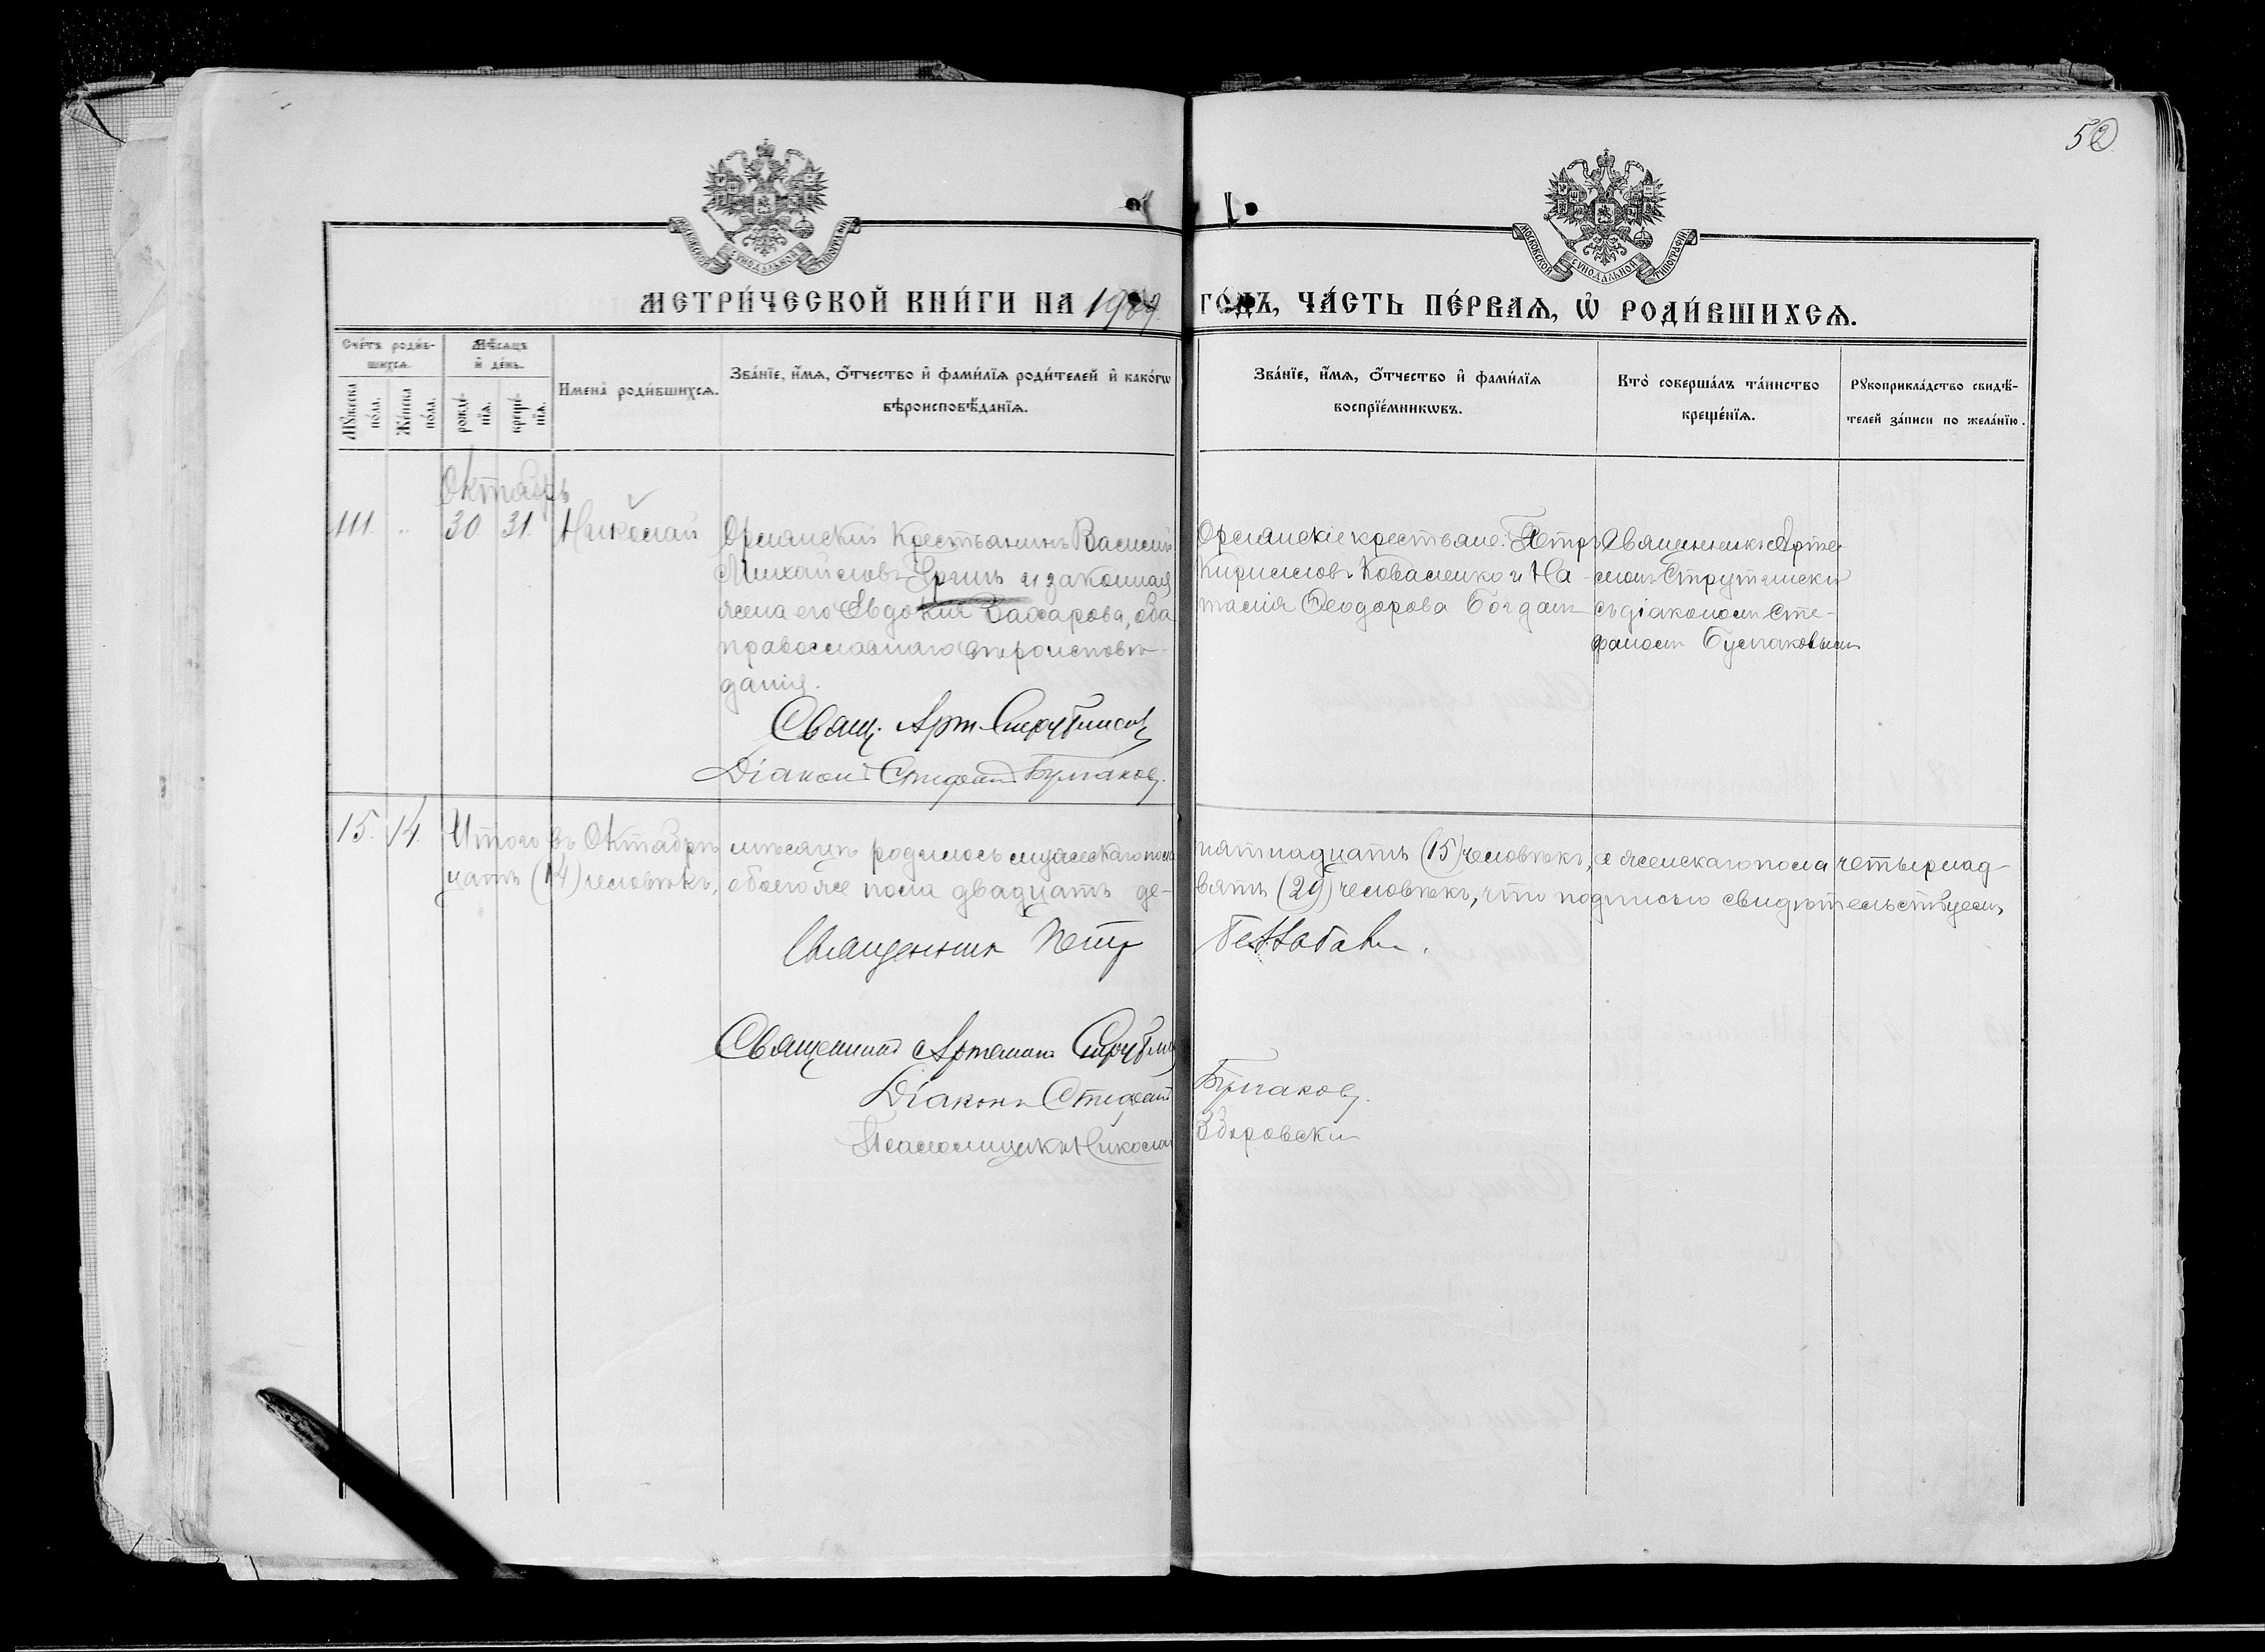 52
МОСКОВСКОЙ СѴНОДАЛЬНОЙ ТИПОГРАФІИ
МОСКОВСКОЙ СѴНОДАЛЬНОЙ ТИПОГРАФІИ
МЕТРИ́ЧЕСКОЙ КНИ́ГИ НА 1909 ГО́ДЪ, ЧА́СТЬ ПЕ́РВАѦ, Ѡ҆ РОДИ́ВШИХСѦ.
Сче́тъ роди́в-
шихсѧ.
Мꙋ́жеска
по́ла.
Же́нска
по́ла.
Мѣ́сѧцъ
и҆ де́нь.
рожде́-
нїѧ.
креще́-
нїѧ.
Имена̀ роди́вшихсѧ.
Зва́нїе, и҆́мѧ, ѻ҆́тчество и҆ фами́лїѧ роди́телей и҆ како́гѡ
вѣроисповѣ́данїѧ.
Зва́нїе, и҆́мѧ, ѻ҆́тчество и҆ фами́лїѧ
воспрїе́мникѡвъ.
Кто̀ соверша́лъ та́инство
креще́нїѧ.
Рꙋкоприкла́дство свидѣ́-
телей за́писи по жела́нїю.
Октябрь
111. „ 30. 31. Николай
Орлянскій крестьянинъ Василій
Михайловъ и законная
жена его Евдокія Захарова, оба
православнаго вѣроисповѣ-
данія.
Орлянскіе крестьяне: Петръ
Кирилловъ Коваленко и На-
талія Ѳеодорова Богдан
Священникъ Арте-
монъ
съ діакономъ Сте-
фаномъ Булгаковымъ
Свящ. Арт.
Діаконъ Стефанъ Булгаковъ.
15. 14. Итого въ Октябрѣ мѣсяцѣ родилось мужескаго пола пятнадцать (15) человѣкъ, а женскаго пола четырнад-
цать (14) человѣкъ, обоего же пола двадцать де- вять (29) человѣкъ, что подписью свидѣтельствуемъ
Священникъ Петръ
Священникъ Артемонъ
Діаконъ Стефанъ Булгаковъ.
Псаломщикъ Николай Здоровскій